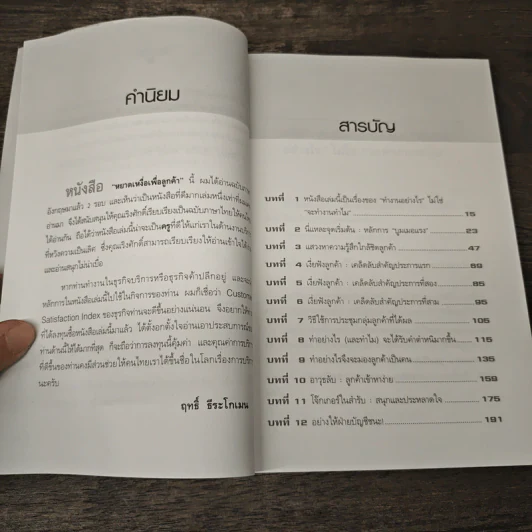 คำนิยม
หนังสือ "หยาดเหงื่อเพื่อลูกค้า" นี้ ผมได้อ่านฉบับภาษา
อังกฤษมาแล้ว 2 รอบ และเห็นว่าเป็นหนังสือที่ดีมากเล่มหนึ่งเท่าที่เคย
อ่านมา จึงได้สนับสนุนให้คุณเริงศักดิ์เรียบเรียงเป็นฉบับภาษาไทยให้คนไทย
ได้อ่านกัน ถือได้ว่าหนังสือเล่มนี้น่าจะเป็นครูที่ดีให้แก่เราในด้านงานบริการ
ที่หวังความเป็นเลิศ ซึ่งคุณเริงศักดิ์สามารถเรียบเรียงให้อ่านเข้าใจได้ง่าย
และอ่านสนุกไม่น่าเบื่อ
หากท่านทำงานในธุรกิจบริการหรือธุรกิจค้าปลีกอยู่ และจะนำ
หลักการในหนังสือเล่มนี้ไปใช้ในกิจการของท่าน ผมก็เชื่อว่า Customer
Satisfaction Index ของธุรกิจท่านจะดีขึ้นอย่างแน่นอน จึงอยากให้ท่าน
ที่ได้ลงทุนซื้อหนังสือเล่มนี้มาแล้ว ได้ตั้งอกตั้งใจอ่านเอาประสบการณ์
ท่านด้านนี้ให้ได้มากที่สุด ก็จะถือว่าการลงทุนนี้คุ้มค่า และคุณค่าการบริการ
ที่ดีขึ้นของท่านคงมีส่วนช่วยให้คนไทยเราได้ขึ้นชื่อในโลกเรื่องการบริการ
นะครับ
ฤทธิ์ ธีระโกเมน
สารบัญ
บทที่ 1 หนังสือเล่มนี้เป็นเรื่องของ "ทำงานอย่างไร" ไม่ใช่
"จะทำงานทำไม" 15
บทที่ 2 นี่แหละจุดเริ่มต้น : หลักการ "บูมเมอแรง" 23
บทที่ 3 แสวงหาความรู้สึกใกล้ชิดลูกค้า 47
บทที่ 4 เงี่ยฟังลูกค้า : เคล็ดลับสำคัญประการแรก 69
บทที่ 5 เงี่ยฟังลูกค้า : เคล็ดลับสำคัญประการที่สอง 85
บทที่ 6 เงี่ยฟังลูกค้า : เคล็ดลับสำคัญประการที่สาม 95
บทที่ 7 วิธีใช้การประชุมกลุ่มลูกค้าที่ได้ผล 105
บทที่ 8 ทำอย่างไร (และทำไม) จะได้รับคำตำหนิมากขึ้น 115
บทที่ 9 ทำอย่างไรจึงจะมองลูกค้าเป็นคน 135
บทที่ 10 อาวุธลับ : ลูกค้าเข้าหาง่าย 159
บทที่ 11 โจ๊กเกอร์ในสำรับ : สนุกและประหลาดใจ 175
บทที่ 12 อย่างให้ฝ่ายบัญชีชนะ! 191